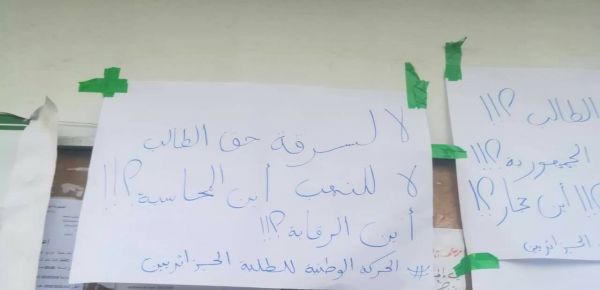 لا لسرقة حق الطالب
لا للنهب أين المحاسبة؟!!
أين الرقابة؟!!
# الحركة الوطنية للطلبة الجزائريين
الطالب؟!!
؟!! أين
الجزائريين